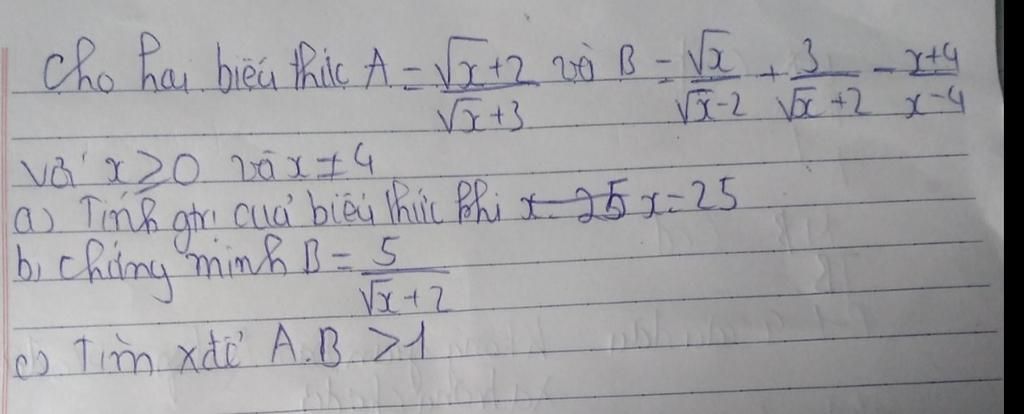 Cho hai biểu thức A = (√x+2)/(√x+3) và B = √x/(√x-2) + 3/(√x+2) - (x+4)/(x-4)
với x ≥ 0 và x ≠ 4
a) Tính gtrị của biểu thức khi x=25 x=25
b, chứng minh B = 5/(√x+2)
c) Tìm x để A.B >1